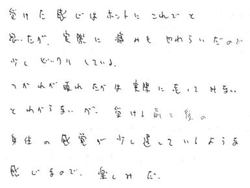 受けた感じはホントにこれでと
思ったが、実際に痛みもやわらいだので
少しビックリしている。
つかれが取れたかは実際に走ってみない
とわからないが、受ける前と後の
身体の感覚が少し違っているような
感じするので、楽しみだ。